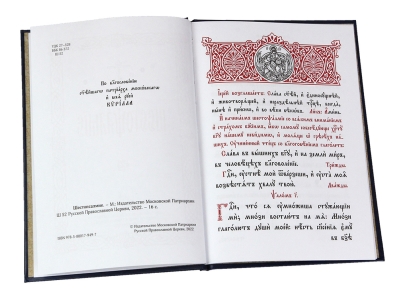 По благословению
свѧтѣйшагѡ патрїарха московскагѡ
и всеѧ рꙋси
кѵрілла
Шестопсалмие. – М.: Издательство Московской Патриархии
Русской Православной Церкви, 2022. – 16 с.
© Издательство Московской Патриархии
Русской Православной Церкви, 2022
Іерей возглашаетъ: Слава ст҃ѣй, и҆ є҆диносꙋщнѣй,
и҆ животворѧщей, и҆ нераздѣльнѣй трⷪ҇цѣ, всегда,
нынѣ и҆ присно, и҆ во вѣки вѣкѡвъ. Ли́къ: Аминь.
И҆ начинаемъ шестоѱалмїе со всѧкимъ вниманїемъ
Слава въ вышнихъ бг҃ꙋ, и҆ на земли миръ,
въ человѣцѣхъ благоволенїе. Трижды.
Гдⷭ҇и, ᲂу҆стнѣ мои ѿверзеши, и҆ ᲂу҆ста моѧ
возвѣстѧтъ хвалꙋ твою. Дважды.
Ѱаломъ г҃.
Гдⷭ҇и, что сѧ ᲂу҆множиша стꙋжающїи
ми; мнози востаютъ на мѧ. Мнози
глаголютъ дꙋши моей: нѣсть спасенїѧ є҆мꙋ
въ бз҃ѣ